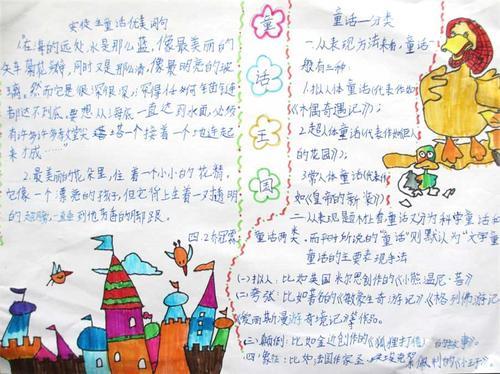 安徒生童话优美词句
1.在海的远处,水是那么蓝,像最美丽的
矢车菊花瓣,同时又是那么清,像最明亮的玻
璃,然而它是很深很深,深得任何
都达不到底。要想从海底一直达到水面,必须
有许多许多教堂尖塔一个接着一个地连起
来才成……”
2.最美丽的花朵里,住着一个小小的花精,
它像一个漂亮的孩子,但它背上生着一双透明
的翅膀,一直到他 的脚跟。
四.2办
童
话
王
国
童话—分类
一.从表现方法来看,童话一
般有三种:
1.拟人体童话(代表作如《
木偶奇遇记》);
2.超人体童话(代表作如巨人
的花园》);
3.常人体童话(代表作
如《皇帝的新装》)
二.从表现题外还看童话又分为科学童话
童话两类,而平时所说的“童话”则默认为“文学童
童话的主要表现手法
(一)拟人:比如英国米尔思创作的《小熊温尼·菩》
(二)夸张:比如著名的《敏豪生奇游记》《格列佛游记
《爱丽斯漫游奇境记》等作品。
(三).颠倒:比如金近创作的《狐狸打猎 的故事》。
四:象征:比如法国作家圣 佩利的《小王子》。